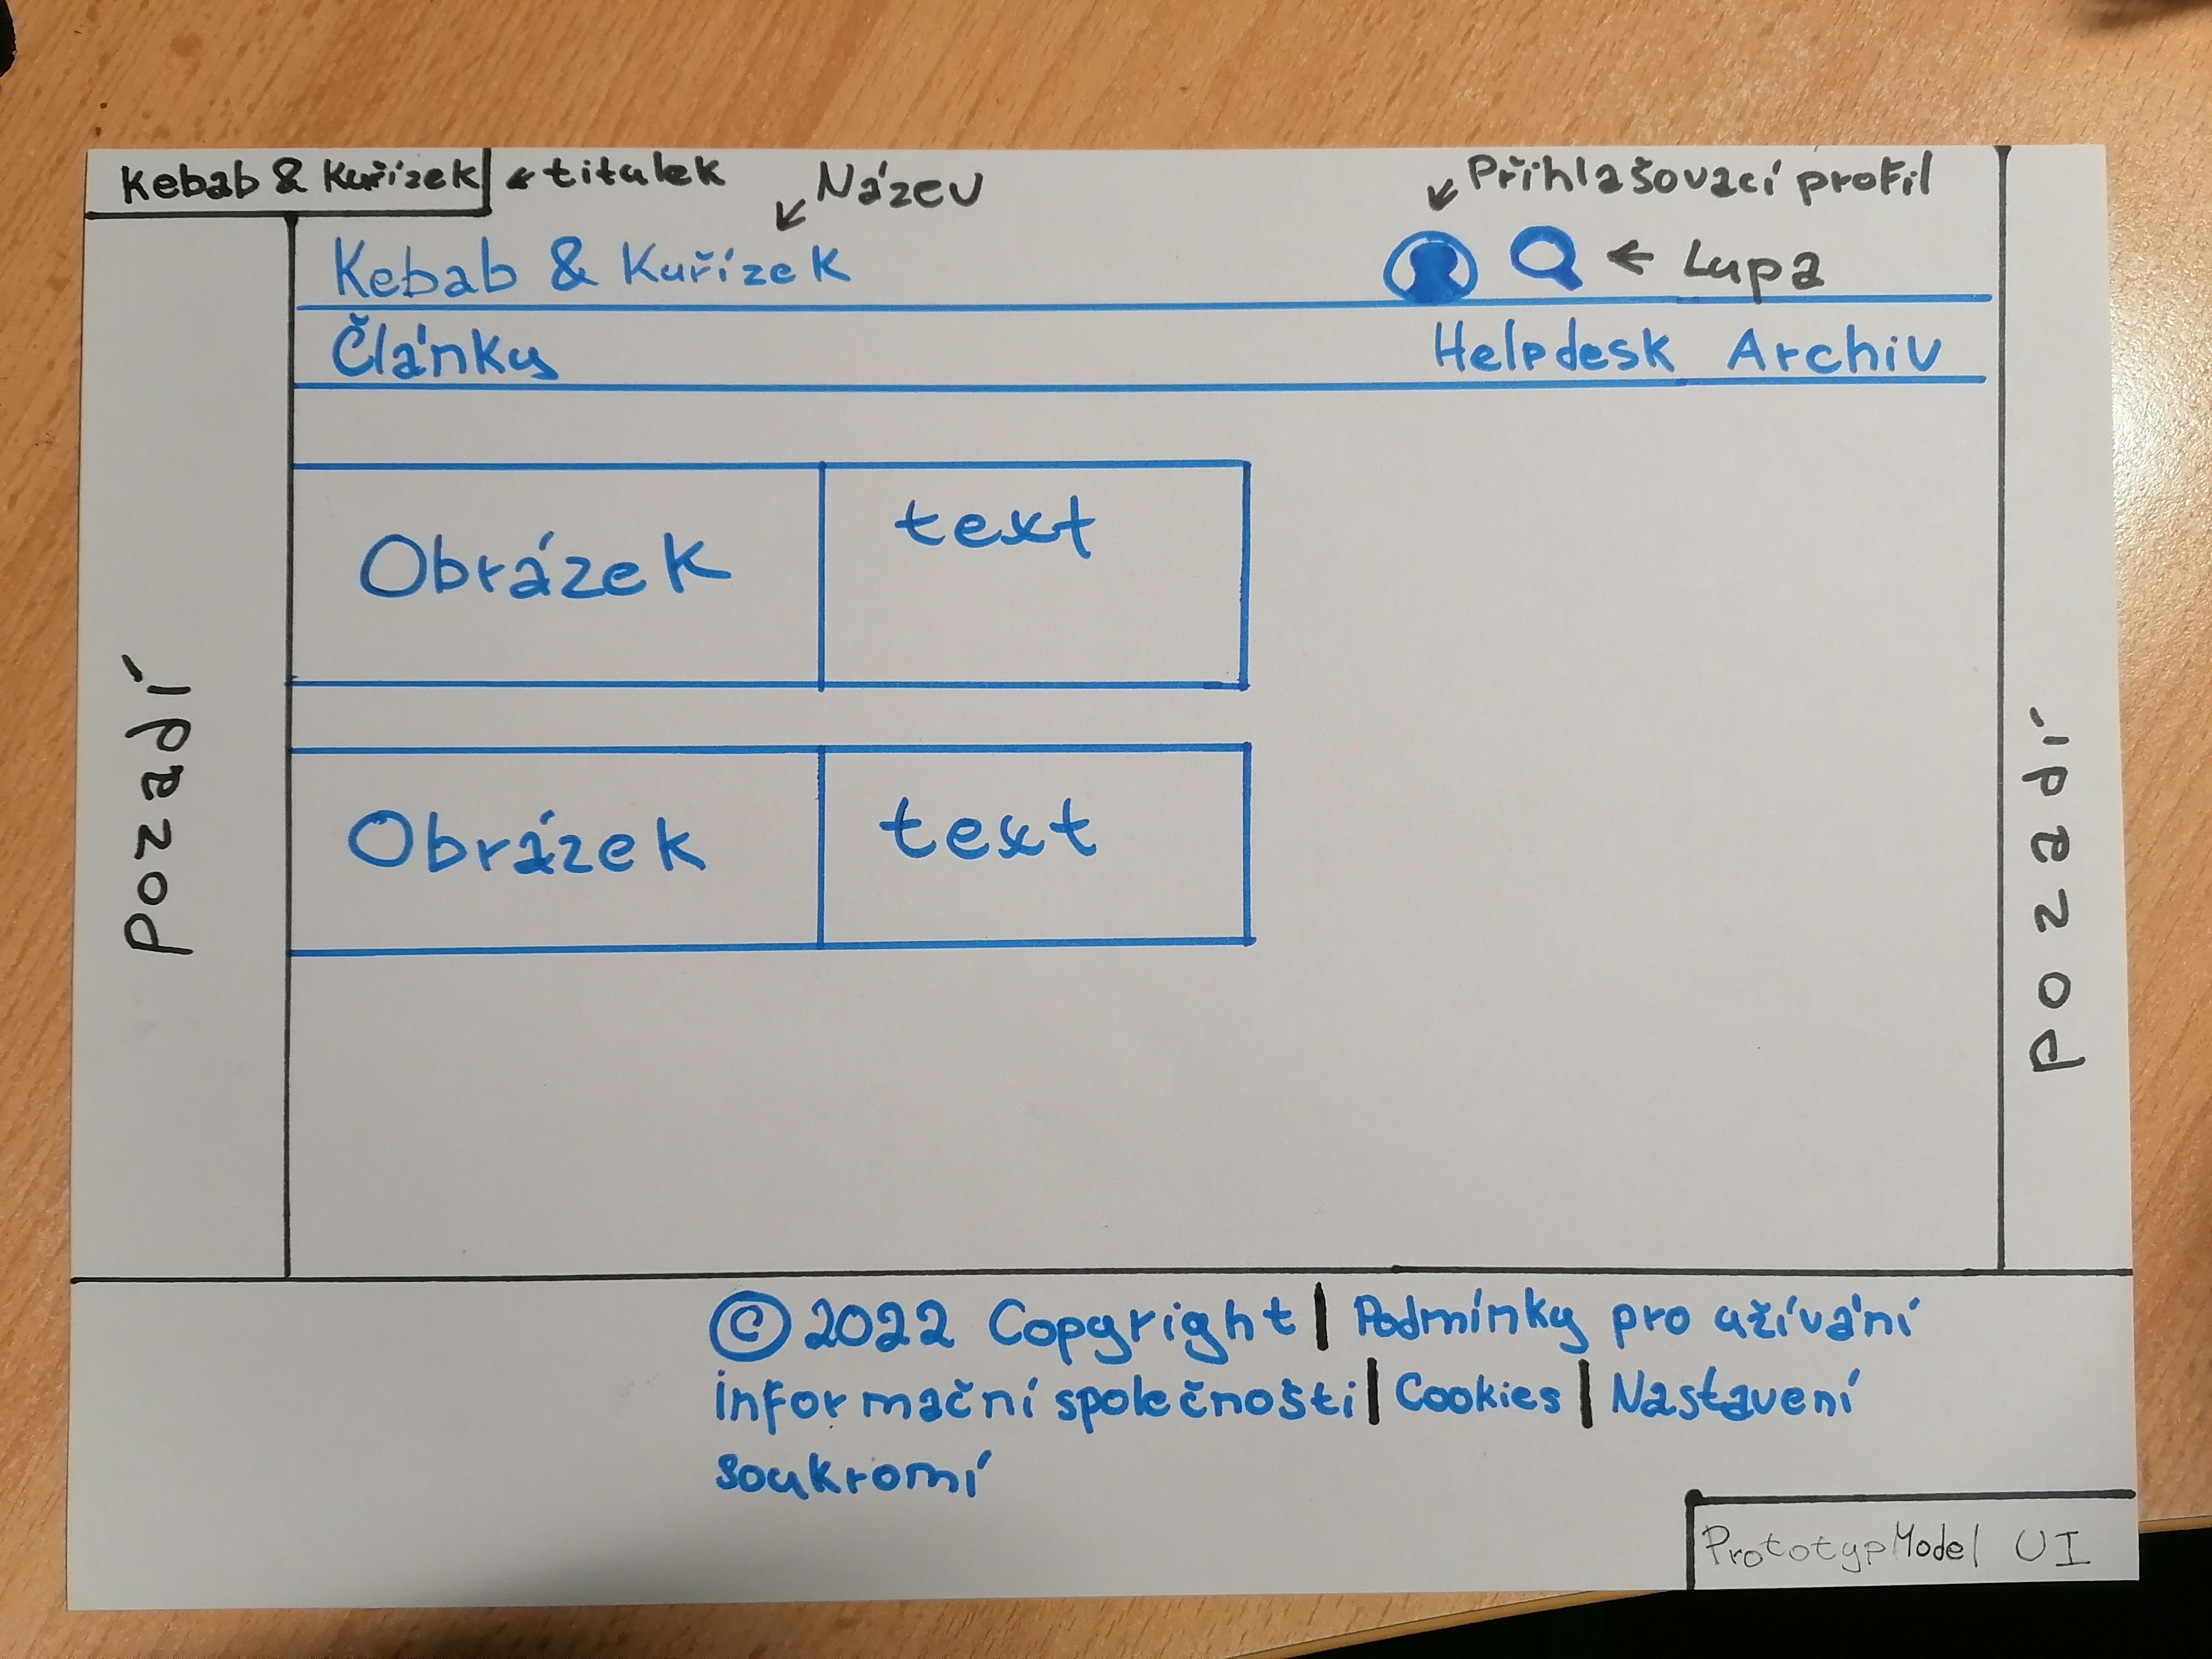 Kebab & Kuřízek
titulek
Název
Přihlašovací profil
Kebab & Kuřízek
Lupa
Články
Helpdesk Archiv
Obrázek
text
Obrázek
text
Pozadí
Pozadí
© 2022 Copyright | Podmínky pro užívání
informační společnosti | Cookies | Nastavení
soukromí
PrototypModel UI